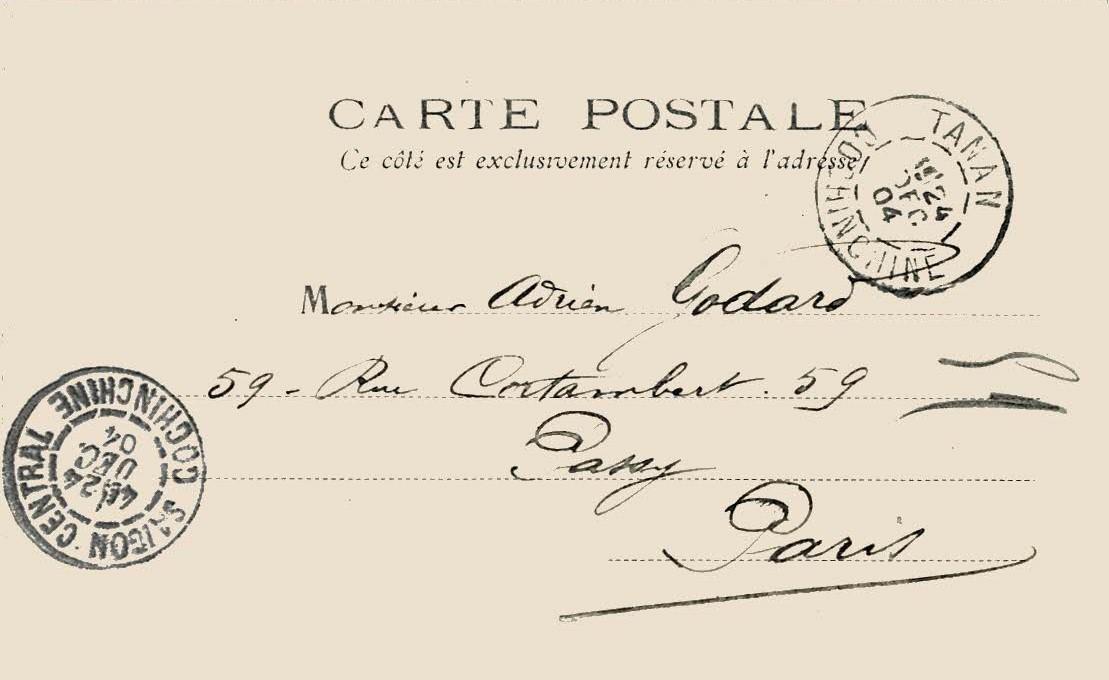 CARTE POSTALE
Ce côté est exclusivement réservé à l'adresse
TANAN
COCHINCHINE
24
DEC
04
Monsieur Adrien Godard
59 - Rue Cortambert . 59
Passy
Paris
SAIGON CENTRAL
COCHINCHINE
4E 24
DEC.
04